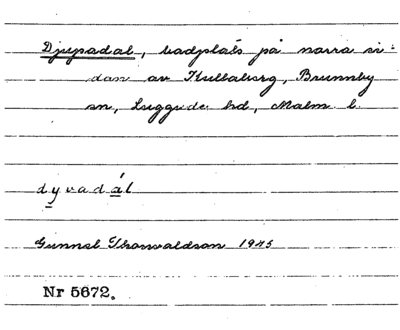 Djupadal, badplats på norra si-
dan av Kullaberg, Brunnby
sn, Luggude hd, Malm. l.
dyvadál
Gunnel Thorvaldson 1945
Nr 5672.